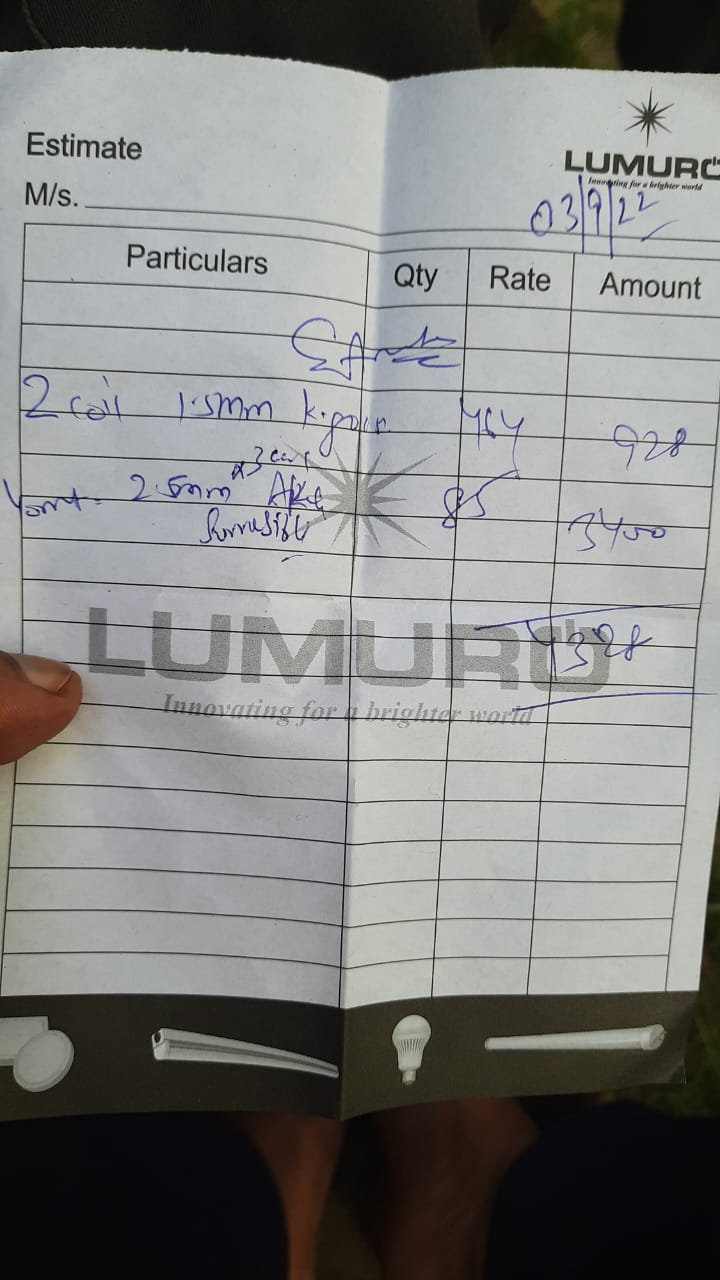 Estimate
LUMURO
Innovating for a brighter world
M/s.
03/9/22
Particulars Qty Rate Amount
2 coil 1.5mm 464 928
x3 core
40mt - 2.5mm 85 3400
4328
LUMURO
Innovating for a brighter world